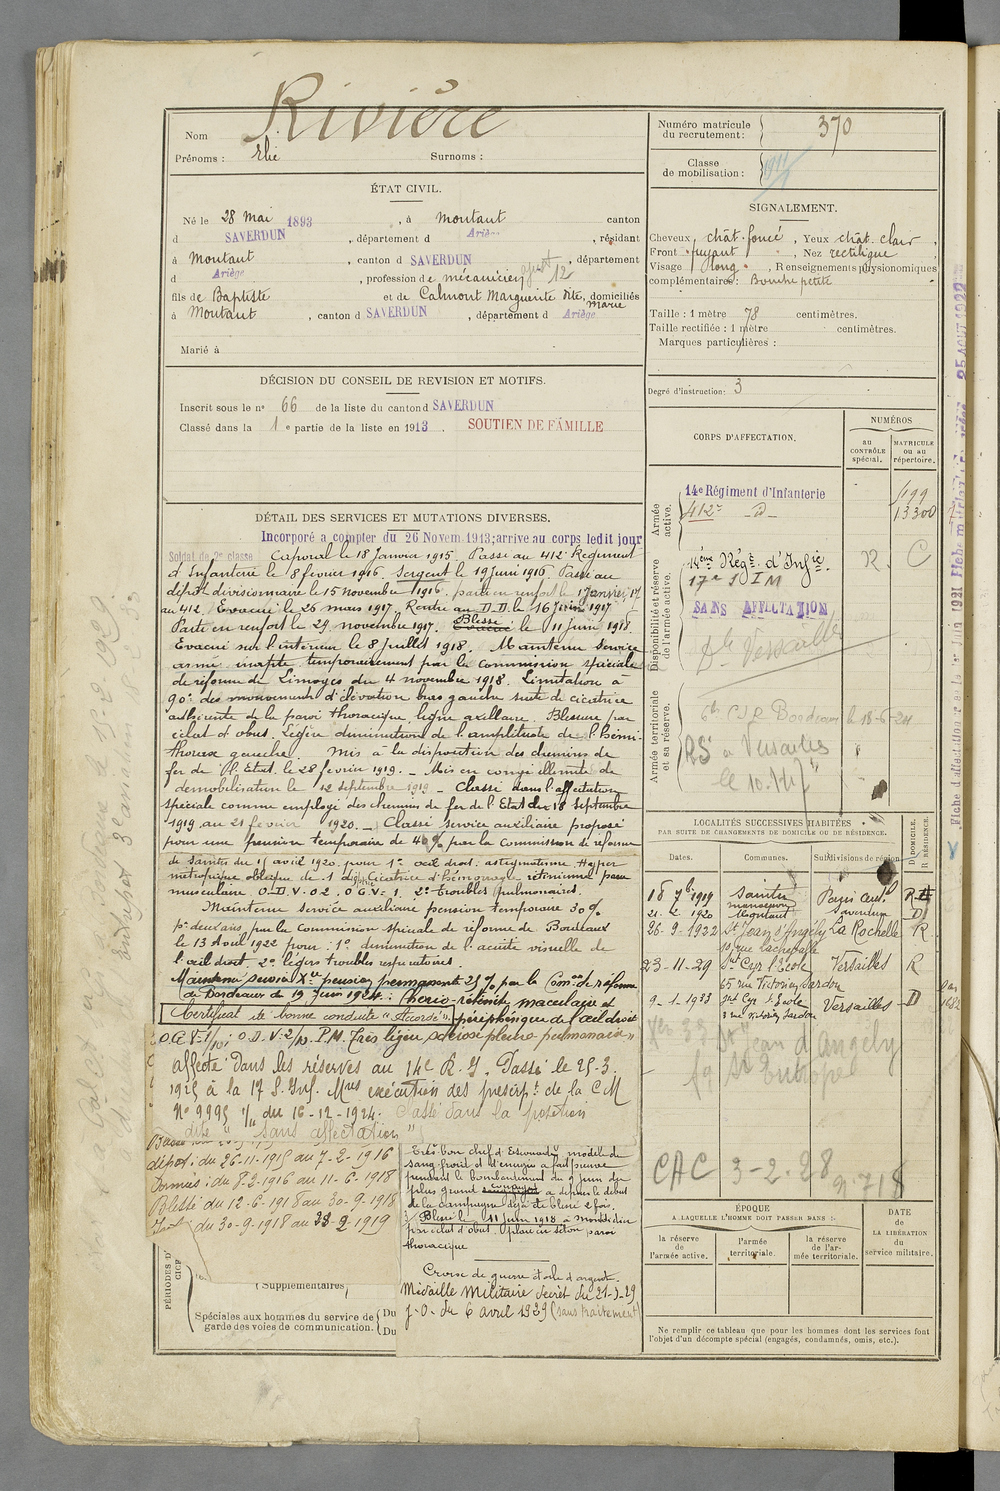 Rivière
Nom
Prénoms : Elie Surnoms :
ÉTAT CIVIL.
Né le 28 Mai 1893, à Montaut canton
d SAVERDUN, département d Ariè, résidant
à Montaut, canton d SAVERDUN, département
d Ariège, profession de mécanicien ajust 12
fils de Baptiste et de Calmont Marguerite dite Marie, domiciliés
à Montaut, canton d SAVERDUN, département d Ariège
Marié à
DÉCISION DU CONSEIL DE REVISION ET MOTIFS.
Inscrit sous le n° 66 de la liste du canton d SAVERDUN
Classé dans la 1e partie de la liste en 1913. SOUTIEN DE FAMILLE
DÉTAIL DES SERVICES ET MUTATIONS DIVERSES.
Incorporé a compter du 26 Novem. 1913; arrive au corps ledit jour
Soldat de 2e classe Caporal le 18 Janvier 1915. Passé au 412e Régiment
d'Infanterie le 8 février 1916. Sergent le 19 Juin 1916. Passé au
dépôt divisionnaire le 15 novembre 1916. parti en renfort le 17 janvier 17
au 412. Evacué le 26 mars 1917. Rentré au D.D. le 16 Juin 1917
Parti en renfort le 29 novembre 1917. Evacué Blessé le 11 Juin 1918.
Evacué sur l'intérieur le 8 Juillet 1918. Maintenu service
armé inapte temporairement par la Commission spéciale
de réforme de Limoges du 4 novembre 1918. Limitation à
90° des mouvements d'élévation bras gauche suite de cicatrice
adhérente de la paroi thoracique, ligne axillaire. Blessure par
éclat d'obus. Légère diminution de l'amplitude de l'hémi-
thorax gauche. Mis à la disposition des chemins de
fer de l'Etat le 28 février 1919. — Mis en congé illimité de
démobilisation le 12 septembre 1919 — Classé dans l'affectation
spéciale comme employé des chemins de fer de l'Etat du 18 Septembre
1919 au 21 février 1920. — Classé service auxiliaire proposé
pour une pension temporaire de 40% par la Commission de réforme
de Saintes du 15 avril 1920 pour 1° œil droit: astigmatisme Hyper
métropique oblique de 1 diop Cicatrice d'hémorragie rétinienne para
musculaire O.D.V=0.2. O.G.V=1. 2° troubles pulmonaires.
Maintenu service auxiliaire pension temporaire 30%
pr deux ans, par la Commission spéciale de réforme de Bordeaux
le 13 Aout 1922 pour: 1° diminution de l'acuité visuelle de
l'œil droit. 2° légers troubles respiratoires.
Maintenu service Xre pension permanente 25% par la Comon de réforme
de Bordeaux du 19 Juin 1924: Chorio-rétinite maculaire et
Certificat de bonne conduite "Accordé". périphérique de l'œil droit
O.G V=1/10; O.D.V=2/10. P.M. Très légère sclérose pleuro pulmonaire
affecté dans les réserves au 14e R.I. Passé le 25-3.
1925 à la 17 S. Inf. Mres exécution des prescripts de la CM
N° 9995 1/1 du 16-12-1924. Passé dans la position
dite "sans affectation"
dépôt: du 26-11-1915 au 7-2-1916
Armées: du 8-2-1916 au 11-6-1918
Blessé du 12-6-1918 au 30-9-1918
du 30-9-1918 au 23-2-1919
Très bon chef d'Escouade, modèle de
sang-froid et d'énergie a fait preuve
pendant le bombardement du 9 Juin du
plus grand courage a depuis le début
de la campagne déjà été blessé 2 fois.
Blessé le 11 Juin 1918 à Montdidier
par éclat d'obus. Plaie en séton paroi
thoracique
Croix de guerre étoile d'argent.
Médaille Militaire décret du 21-3-29
J.O. du 6 avril 1929 (sans traitement)
(Supplémentaires)
PÉRIODES D'
Spéciales aux hommes du service de
garde des voies de communication. Du
Du
Numéro matricule du recrutement: 370
Classe de mobilisation: 1911
SIGNALEMENT.
Cheveux chât. foncé, Yeux chât. clair,
Front fuyant, Nez rectiligne
Visage long, Renseignements physionomiques
complémentaires: Bouche petite
Taille : 1 mètre 78 centimètres.
Taille rectifiée : 1 mètre centimètres.
Marques particulières :
Degré d'instruction: 3
CORPS D'AFFECTATION.
NUMÉROS
au CONTRÔLE spécial.
MATRICULE ou au répertoire.
Armée active.
14e Régiment d'Infanterie
412e — d —
13300
Disponibilité et réserve de l'armée active.
14ème Régt. d'Infie. R. C
17e S I M
SANS AFFECTATION
Armée territoriale et sa réserve.
6e CSR Bordeaux le 18-6-24
RSt a Versailles
LOCALITÉS SUCCESSIVES HABITÉES
PAR SUITE DE CHANGEMENTS DE DOMICILE OU DE RÉSIDENCE.
Dates. Communes. Subdivisions de région. D DOMICILE. R RÉSIDENCE.
18 7bre 1919 Saintes
21-2-1920 Montaut Saverdun D
26-9-1922 St Jean d'Angély La Rochelle R
23-11-29 St Cyr l'Ecole Versailles R
65 rue Victorien Sardou
9-1-1933 St Cyr l'Ecole Versailles D
3 rue Victorien Sardou
St Jean d'Angely
St Eutrope
CAC 3-2-28 n° 718
ÉPOQUE
A LAQUELLE L'HOMME DOIT PASSER DANS :
la réserve de l'armée active.
l'armée territoriale.
la réserve de l'armée territoriale.
DATE de LA LIBÉRATION du service militaire.
Ne remplir ce tableau que pour les hommes dont les services font
l'objet d'un décompte spécial (engagés, condamnés, omis, etc.).